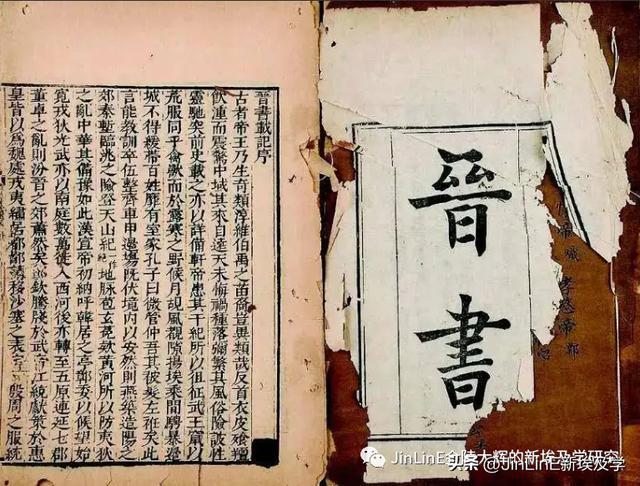 晉書載記序
古者帝王乃生奇類淳維伯禹之苗裔豈異類哉反首衣皮飱羶
飲湩而震驚中域其來自遠天未悔禍種落彌繁其風俗險詖性
靈馳突前史載之亦以詳備軒帝患其干紀所以徂征武王竄以
荒服同乎禽獸而於露寒之野候月覘風覩隙揚埃乘間騁暴邊
城不得緩帶百姓靡有室家孔子曰微管仲吾其被髮左衽矣此
言能教訓卒伍整齊車甲邊場既伏境內以安然則燕築造陽之
郊秦塹臨洮之險登天山紀地脉苞玄菟款黃河所以防夷狄
之亂中華其備豫如此漢宣帝初納呼韓居之亭鄣委以候望始
寬戎狄光武亦以南庭數萬徙入西河後亦轉至五原連延七郡
董卓之亂則汾晉之郊蕭然矣郭欽騰牋於武帝江統獻策於惠
皇皆以爲魏處戎夷繡居都鄙請移沙塞之表定殷周之服統
晉書
孝愍帝鄴
JinLinE金陵大辉的新埃及学研究
头条@JinLinE新埃及学